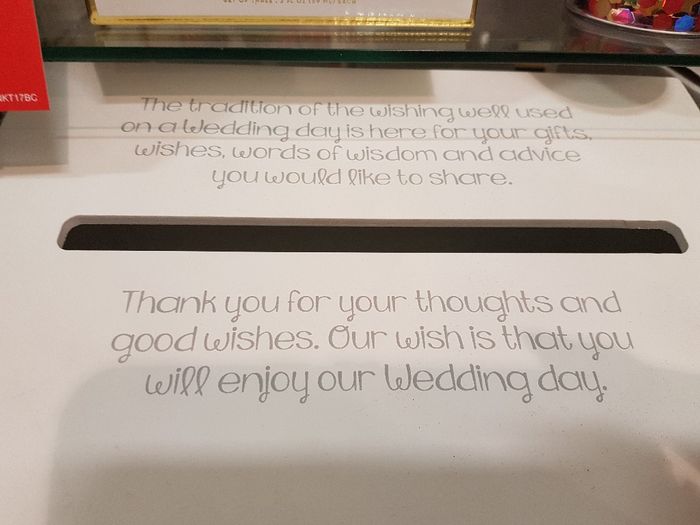 NKT17BC
The tradition of the wishing well used
on a Wedding day is here for your gifts,
wishes, words of wisdom and advice
you would like to share.
Thank you for your thoughts and
good wishes. Our wish is that you
will enjoy our Wedding day.